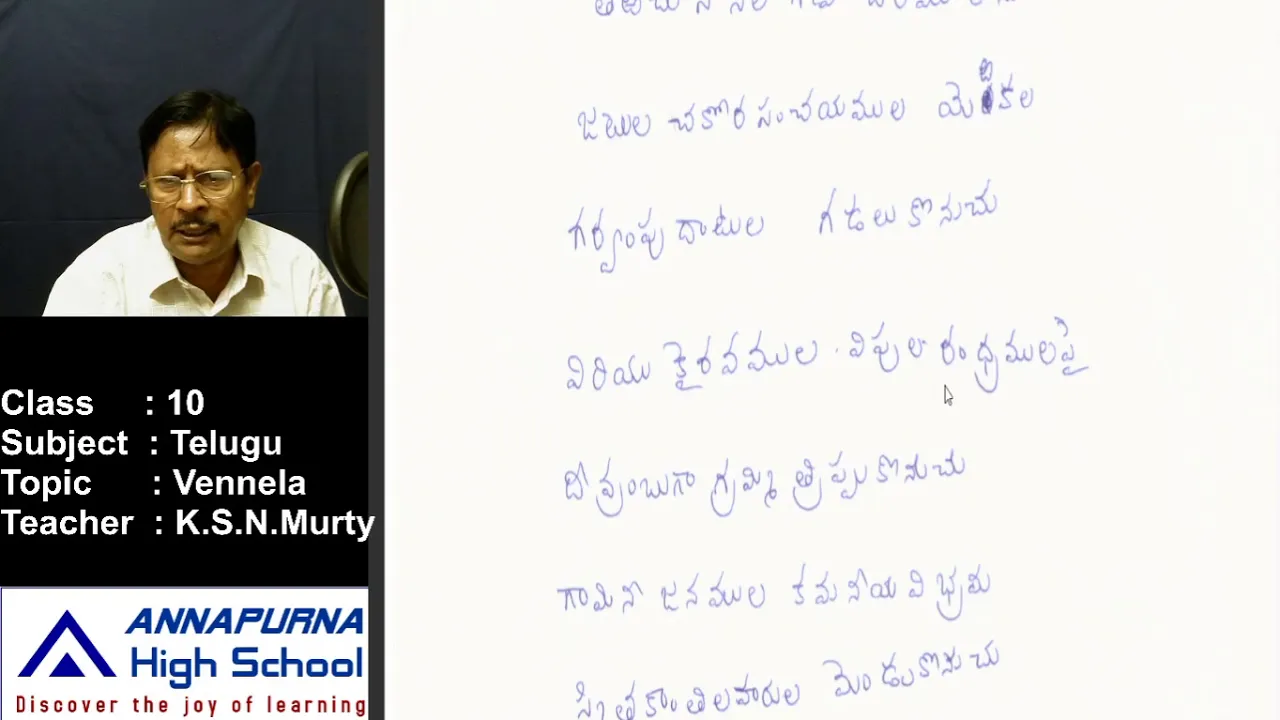 Class : 10
Subject : Telugu
Topic : Vennela
Teacher : K.S.N.Murty
ANNAPURNA
High School
Discover the joy of learning
జాబుల చకోర సంచయముల
గర్వంపు దాటుల గడలు కొనుచు
విరియు కైరవముల విపుల రంధ్రములపై
దీవ్రంబుగా గ్రమ్మి త్రిప్పుకొనుచు
గామినీ జనముల కమనీయ విభ్రమ
స్మితకాంతిలహరుల మెండుకొనుచు